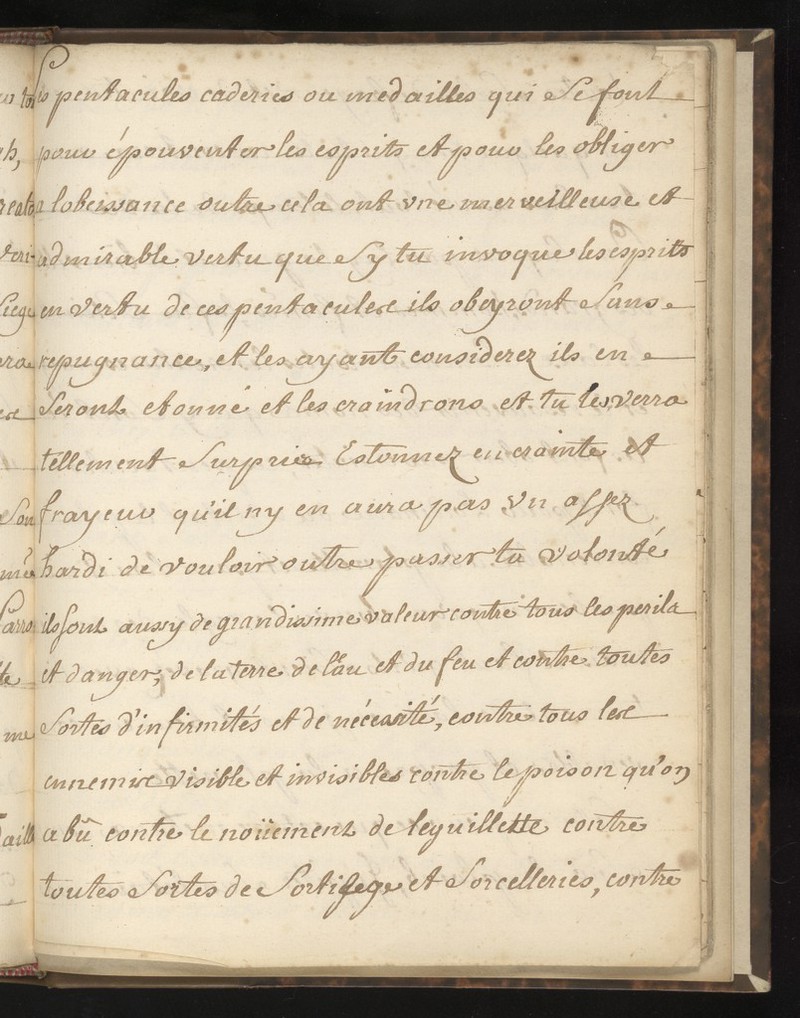 Les pentacules caderies ou medailles qui Se font
pour épouventer les esprits et pour les obliger
a lobeissance outre cela ont vne merveilleuse et
admirable vertu que Sy tu invoque les esprits
en vertu de ces pentacules ils obeyront Sans
repugnance, et les ayant considerez ils en
Seront etonné et les craindrons et tu les verra
tellement Surpris Estonnez en crainte et
frayeur qu'il ny en aura pas vn assez
hardi de vouloir outre passer ta volonté
ils sont aussy de grandissime valeur contre tous les perils
et danger, de la terre de l'eau et du feu et contre toutes
Sortes d'infirmités et de nécessité, contre tous les
ennemis visible et invisibles contre le poison qu'on
a bû contre le noüement de leguillette contre
toutes Sortes de Sortilege et Sorcelleries, contre